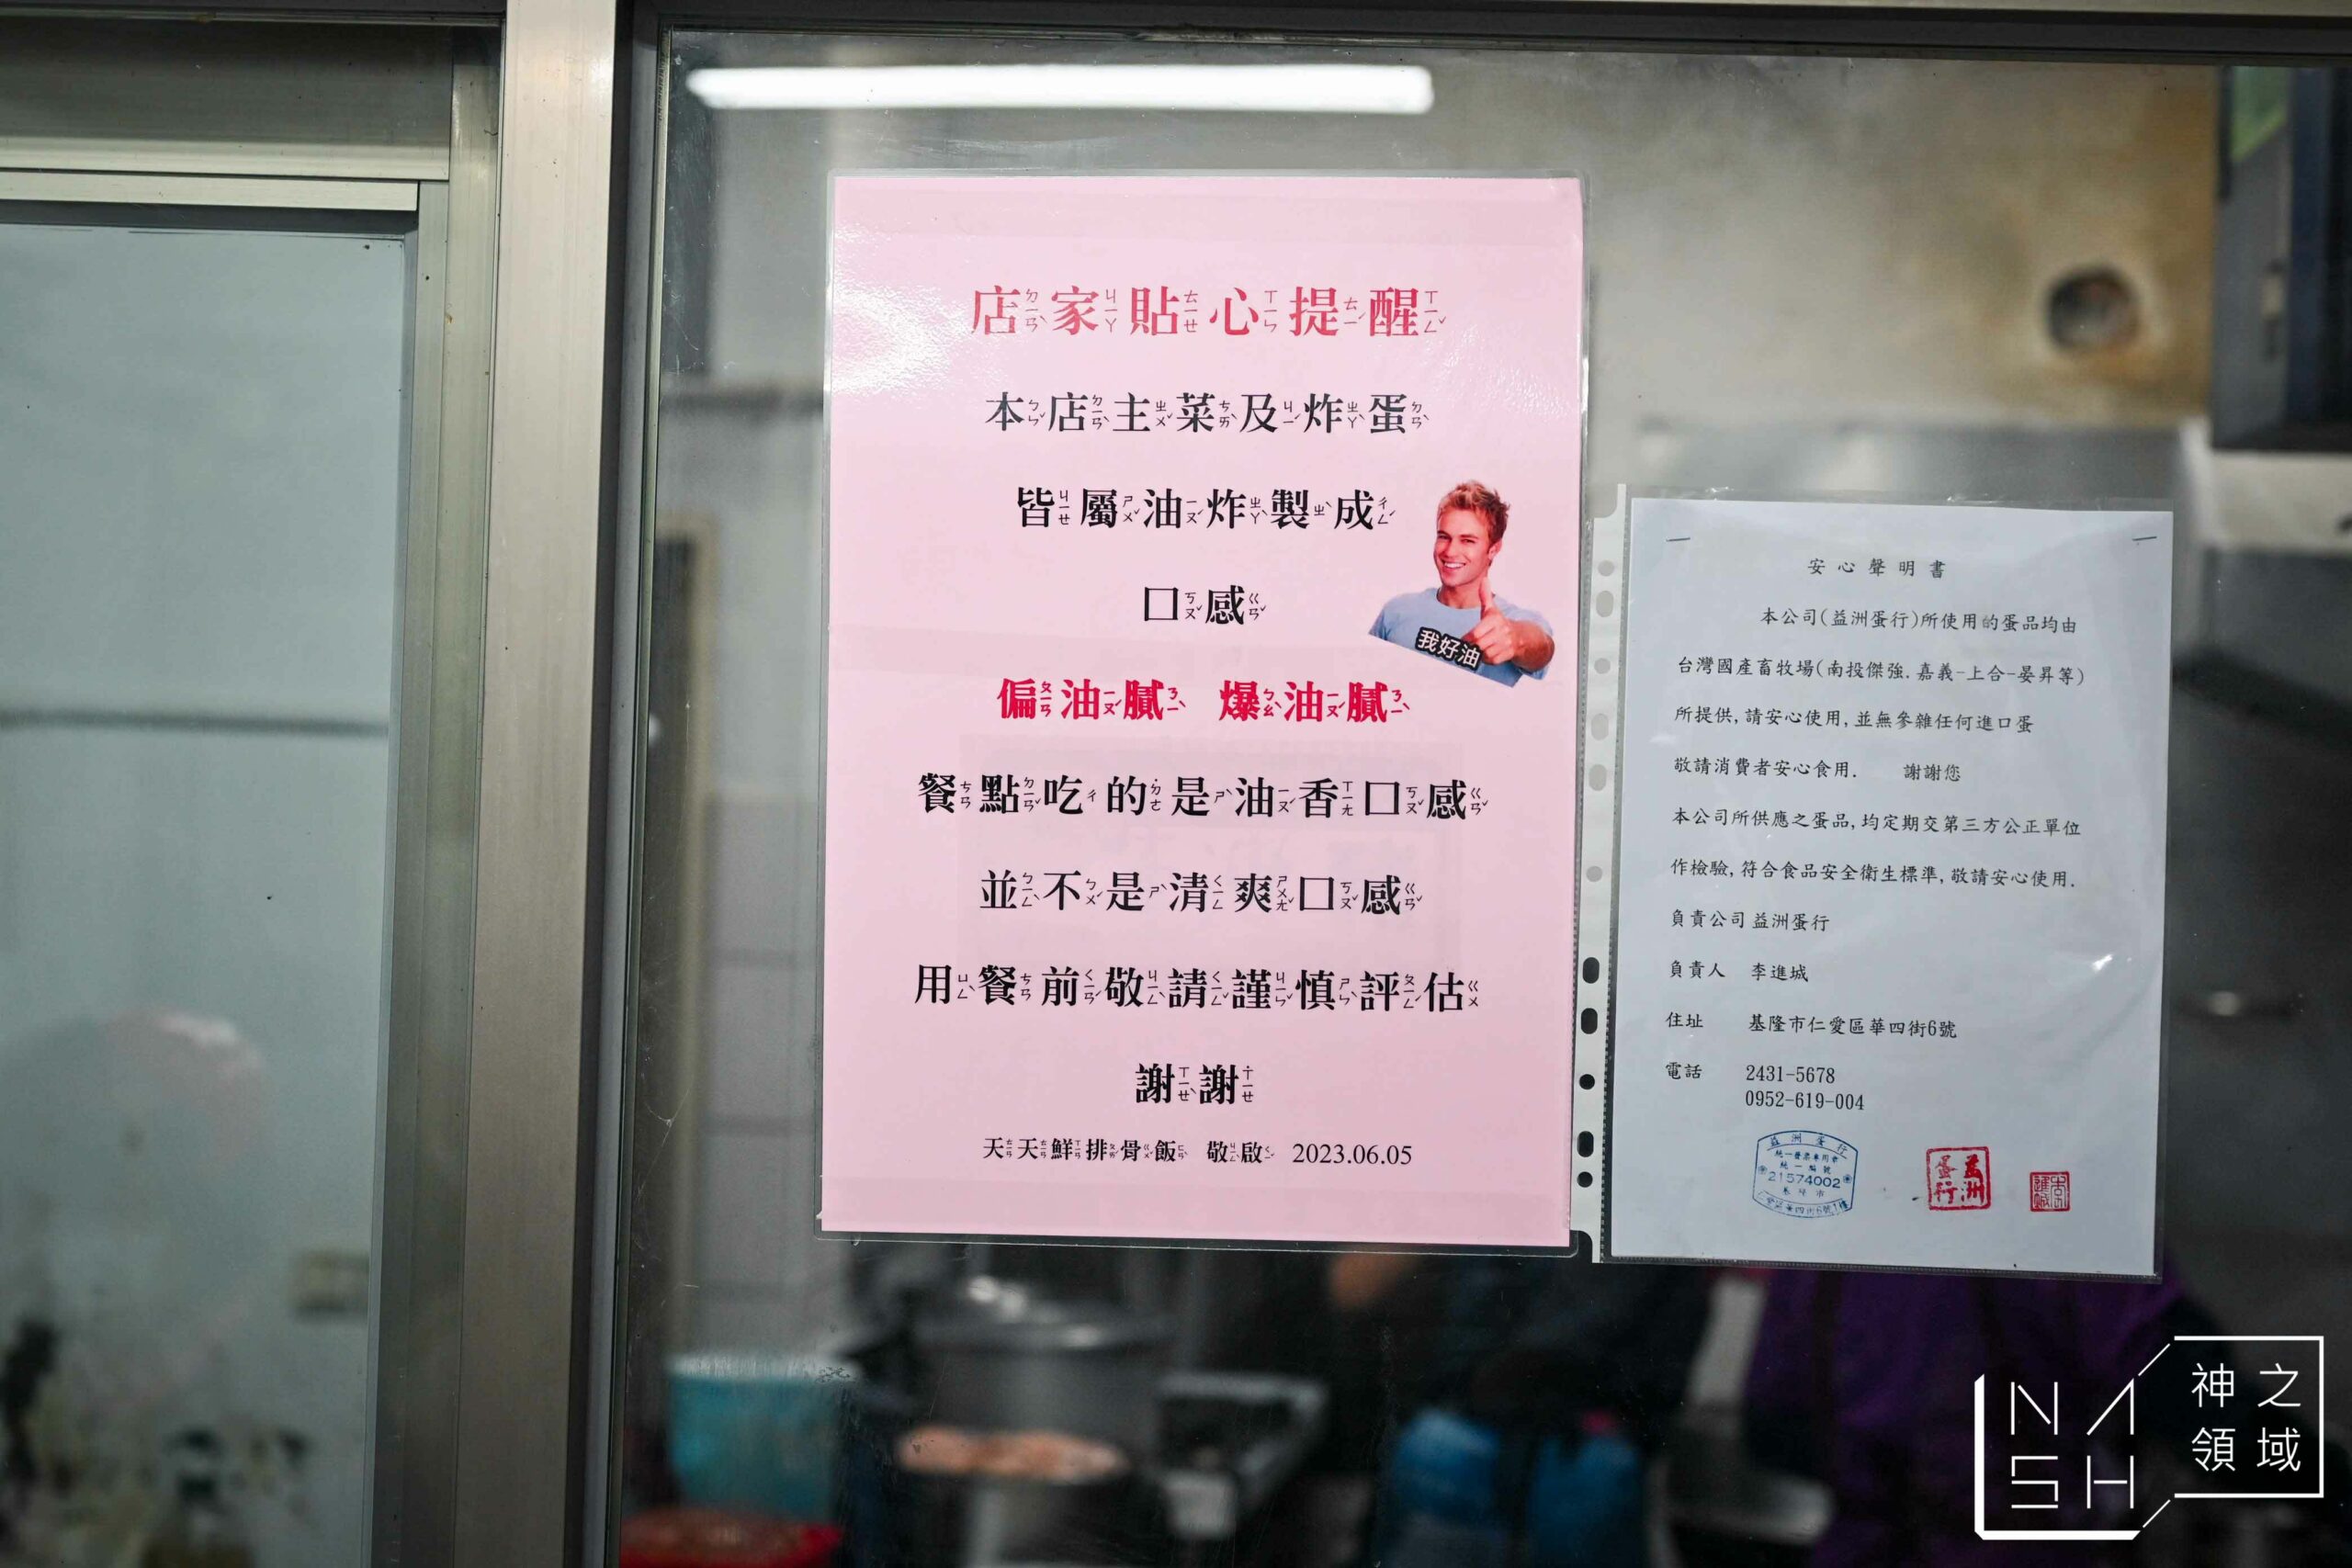 店家貼心提醒
本店主菜及炸蛋
皆屬油炸製成
口感
我好油
偏油膩 爆油膩
餐點吃的是油香口感
並不是清爽口感
用餐前敬請謹慎評估
謝謝
天天鮮排骨飯 敬啟 2023.06.05
安心聲明書
本公司(益洲蛋行)所使用的蛋品均由
台灣國產畜牧場(南投傑強.嘉義-上合-晏昇等)
所提供,請安心使用,並無參雜任何進口蛋
敬請消費者安心食用. 謝謝您
本公司所供應之蛋品,均定期交第三方公正單位
作檢驗,符合食品安全衛生標準,敬請安心使用.
負責公司 益洲蛋行
負責人 李進城
住址 基隆市仁愛區華四街6號
電話 2431-5678
0952-619-004
益洲蛋行
統一發票專用章
統一編號
21574002
益洲蛋行
NASH
神之領域